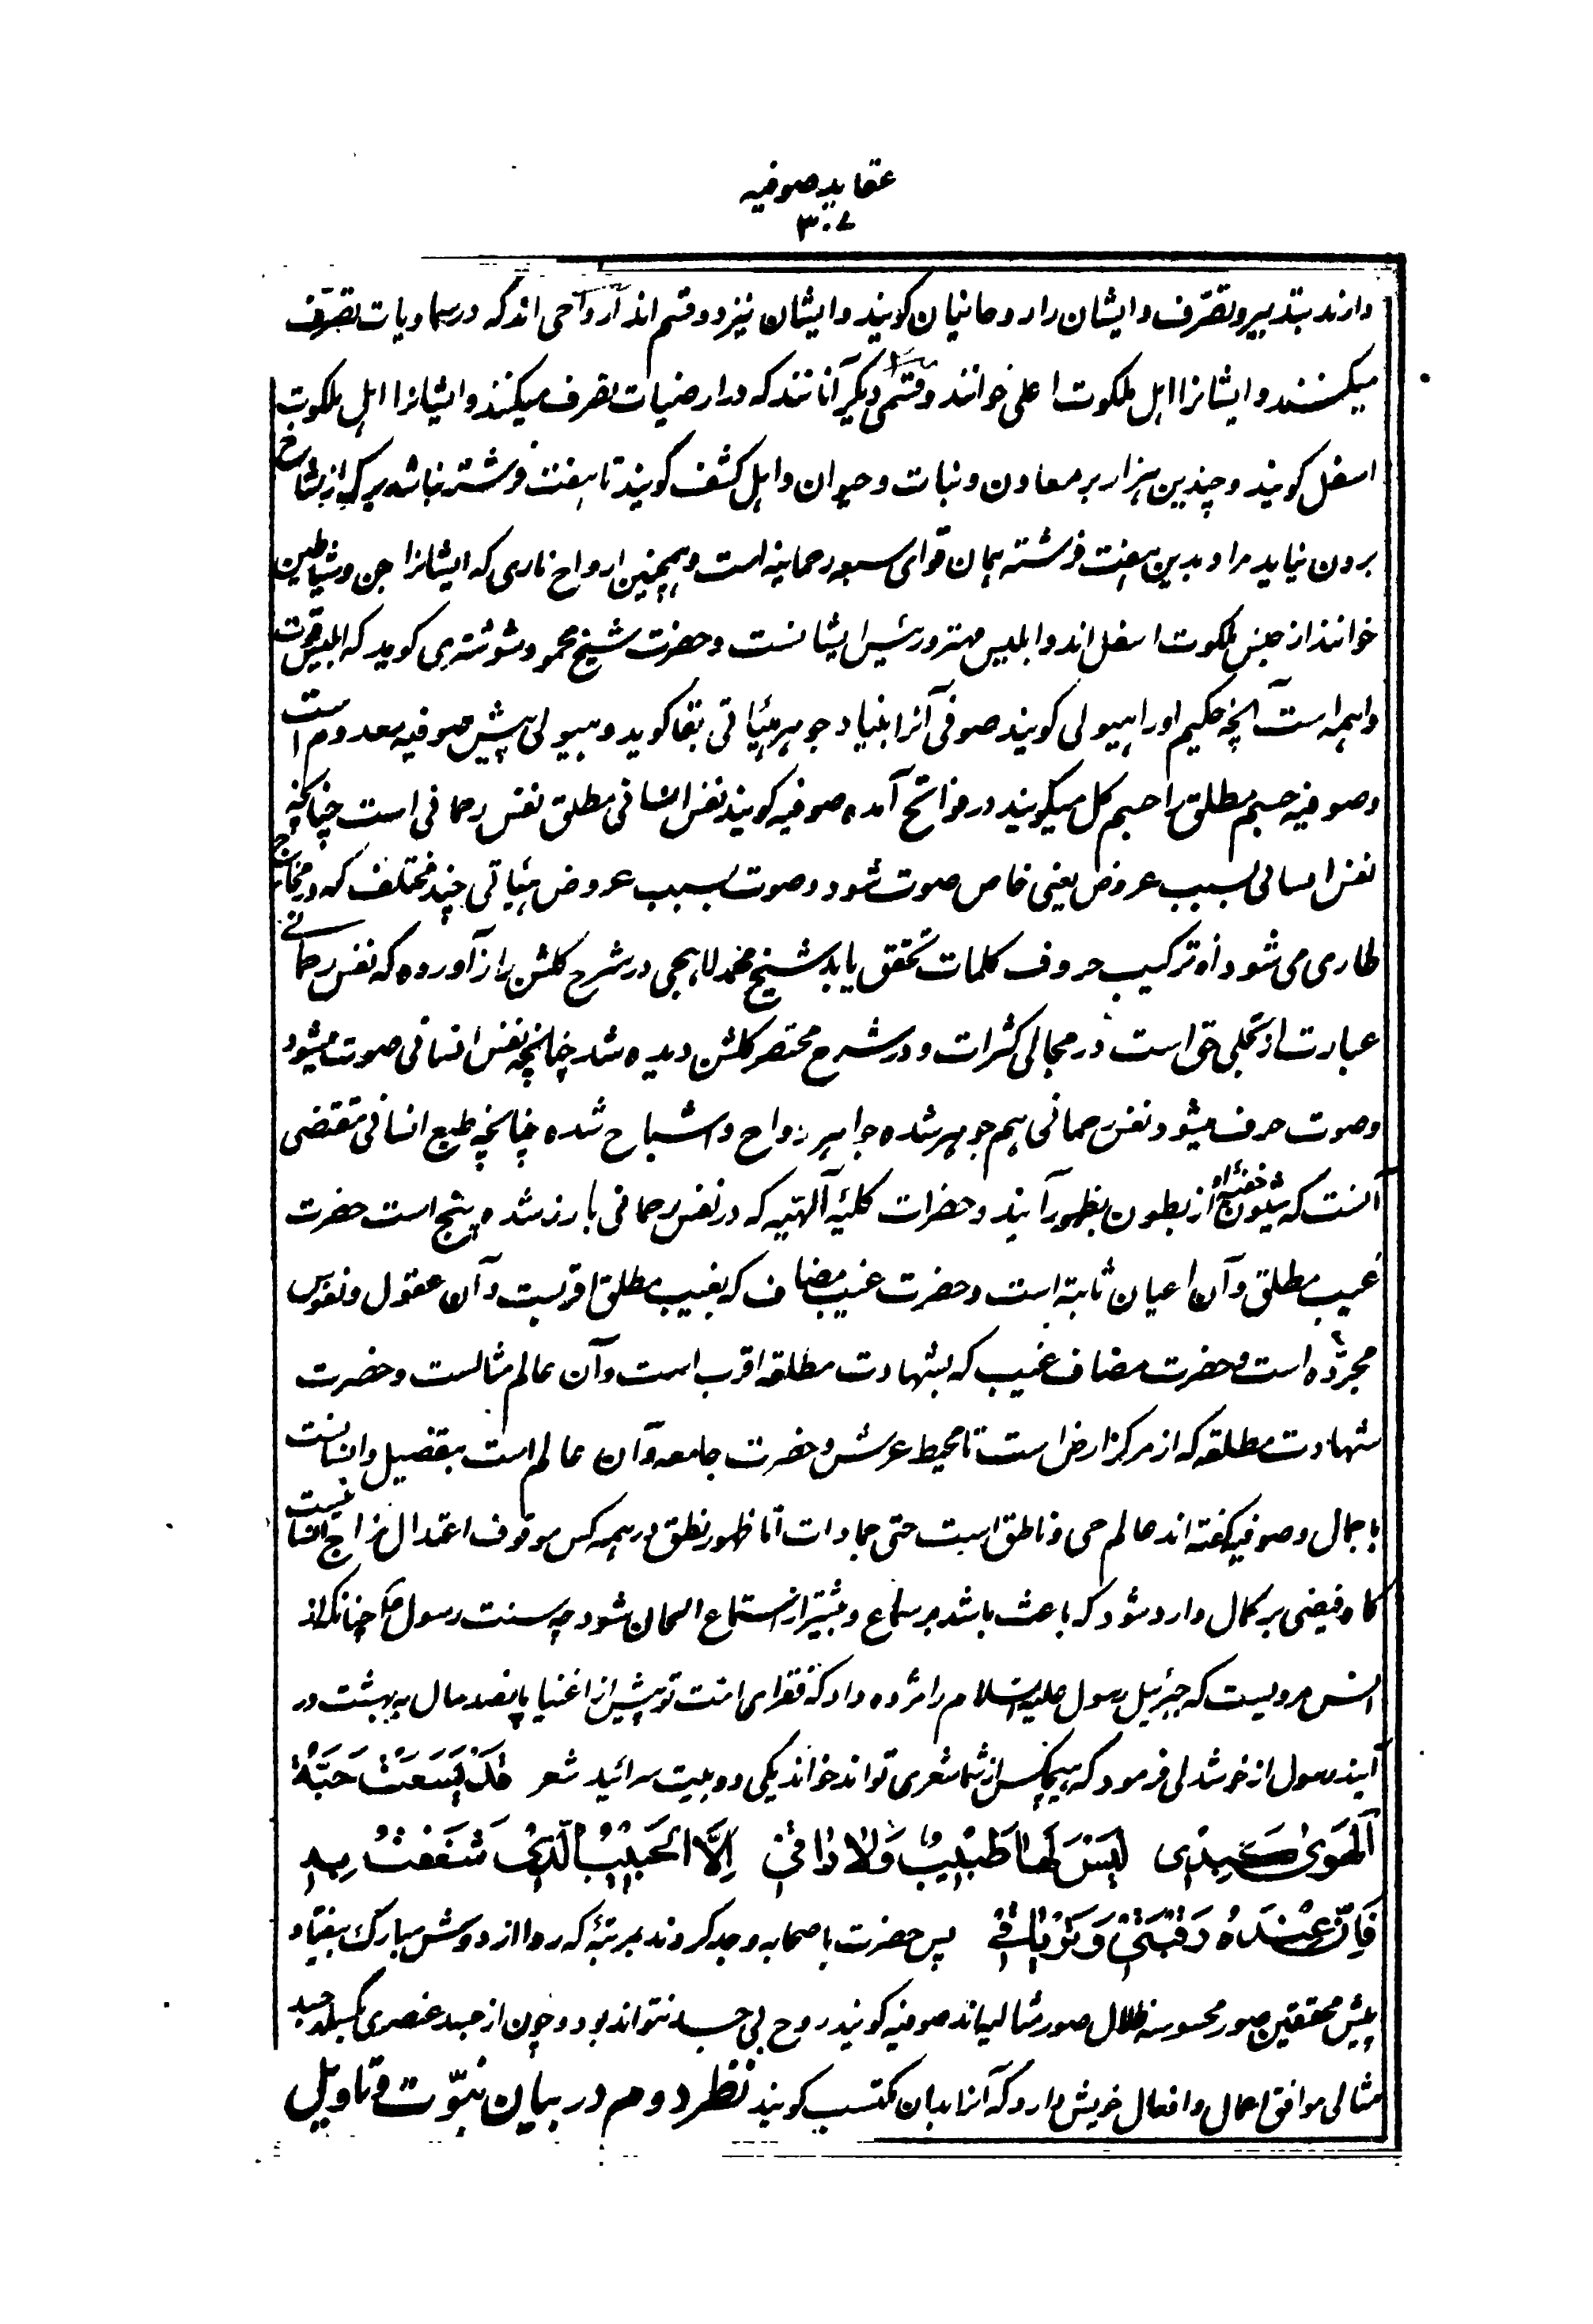 عقاید صوفیه
۳۰۷
دارند بتدبیر و تصرّف و ایشان را روحانیان کویند و ایشان نیز دو قسم اند ارواحی اند که در سماویات تصرّف
میکنند و ایشانرا اهل ملکوت اعلی خوانند و قسمی دیکر آنانند که در ارضیات تصرف میکنند و ایشانرا اهل ملکوت
اسفل کویند و چندین هزار بر معادن و نبات و حیوان و اهل کشف کویند تا هفت فرشته نباشد برکی از شاخ
برون نیاید مراد بدین هفت فرشته همان قوای سبعه رحمانیه است و همچنین ارواح ناری که ایشانرا جن و شیاطین
خوانند از جنس ملکوت اسفل اند و ابلیس مهتر و رئیس ایشانست و حضرت شیخ محمود شوشتری کوید که ابلیس قوت
واهمه است آنچه حکیم اورا هیولی کویند صوفی آنرا بنیاد جوهر هیئاتی بقا کوید و هیولی پیش صوفیه معدوم است
و صوفیه جسم مطلق را جسم کل میکویند در فواتح آمده صوفیه کویند نفس انسانی مطلق نفس رحمانی است چنانچه
نفس انسانی بسبب عروض یعنی خاص صوت شود و صوت بسبب عروض هیئاتی چند مختلف که در مخارج
طاری می شود از ترکیب حروف کلمات تحقق یابد شیخ محمد لاهجی در شرح کلشن راز آورده که نفس رحمانی
عبارت از تجلی حق است در مجالی کثرات و در شرح مختصر کلشن دیده شد چنانچه نفس انسانی صوت میشود
و صوت حرف میشود نفس رحمانی هم جوهر شده جواهر ارواح و اشباح شده چنانچه طبع انسانی مقتضی
آنست که شیون خفیه او از بطون بظهور آیند و حضرات کلیّه آلهیه که در نفس رحمانی بارز شده پنج است حضرت
غیب مطلق و آن اعیان ثابته است و حضرت غیب مضاف که بغیب مطلق اقربست و آن عقول و نفوس
مجرّده است و حضرت مضاف غیب که بشهادت مطلقه اقرب است و آن عالم مثالست و حضرت
شهادت مطلقه که از مرکز ارض است تا محیط عرش و حضرت جامعه و آن عالم است بتفصیل و انسانست
باجمال و صوفیه کفته اند عالم حی و ناطق است حتی جمادات اما ظهور نطق در همه کس موقوف اعتدال مزاج انسانیست
کاه فیضی بر کمال وارد شود که باعث باشد بر سماع و بیشتر از استماع الحان شود چه سنت رسول چنانکه از
انس مرویست که جبرئیل رسول علیه السلام را مژده داد که فقرای امت تو پیش از اغنیا پانصد سال به بهشت در
آیند رسول از خوشدلی فرمود که هیچکس از شما شعری تواند خواند یکی دو بیت سرائید شعر قَدْ لَسَعَتْ حَیَّةُ
اَلْهَوٰی کَبِدِی لَیْسَ لَهَا طَبِیْبٌ وَلَا رَاقِیْ اِلَّا الْحَبِیْبُ الَّذِیْ شَغَفْتُ بِهِ
فَاِنَّ عِنْدَهُ رَقْیَتِیْ وَ تَرْیَاقِیْ پس حضرت با صحابه وجد کردند بمرتبهٔ که ردا از دوش مبارک بیفتاد
پیش محققین صور محسوسه ظلال صور مثالیه اند صوفیه کویند روح بی جسد نتواند بود و چون از جسد عنصری بکسلد جسد
مثالی موافق اعمال و افعال خویش دارد که آنرا بدان مکتسب کویند نظر دوم در بیان نبوّت و تاویل